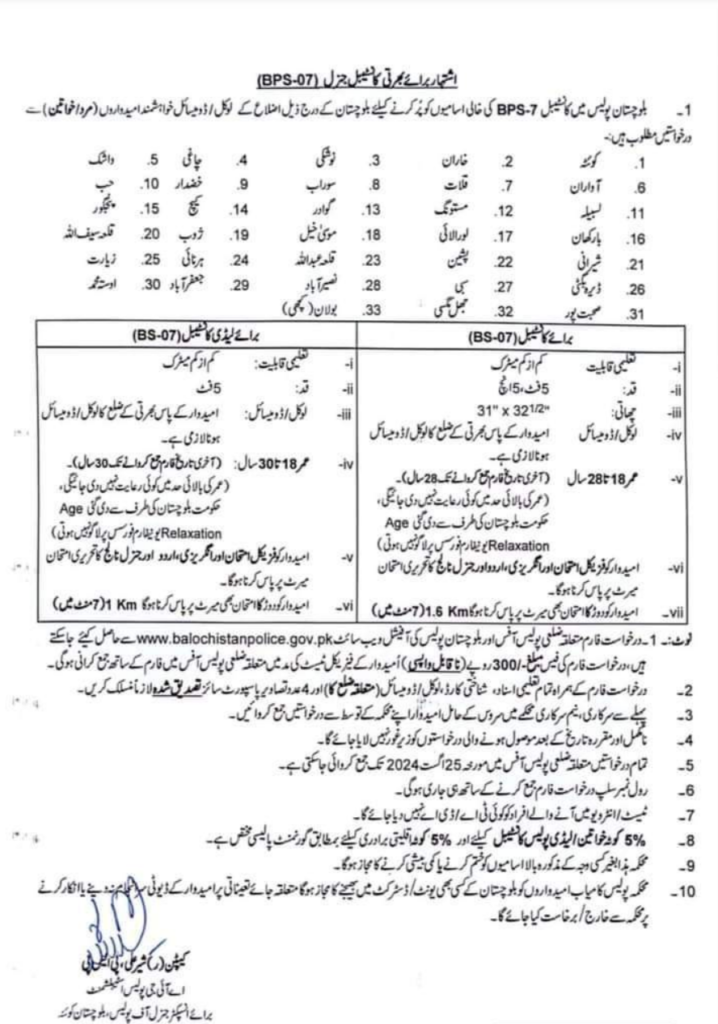 اشتہار برائے بھرتی کانسٹیبل جنرل (BPS-07)
1۔ بلوچستان پولیس میں کانسٹیبل BPS-7 کی خالی اسامیوں کو پُر کرنے کیلئے بلوچستان کے درج ذیل اضلاع کے لوکل/ڈومیسائل خواہشمند امیدواروں (مرد/خواتین) سے
درخواستیں مطلوب ہیں:-
1. کوئٹہ 2. خاران 3. نوشکی 4. چاغی 5. واشک
6. آواران 7. قلات 8. سوراب 9. خضدار 10. حب
11. لسبیلہ 12. مستونگ 13. گوادر 14. کیچ 15. پنجگور
16. بارکھان 17. لورالائی 18. موسیٰ خیل 19. ژوب 20. قلعہ سیف اللہ
21. شیرانی 22. پشین 23. قلعہ عبداللہ 24. ہرنائی 25. زیارت
26. ڈیرہ بگٹی 27. سبی 28. نصیرآباد 29. جعفرآباد 30. اوستہ محمد
31. صحبت پور 32. جھل مگسی 33. بولان (کچھی)
برائے کانسٹیبل (BS-07)
i- تعلیمی قابلیت کم از کم میٹرک
ii- قد: 5فٹ، 5انچ
iii- چھاتی: 31" x 32 1/2"
iv- لوکل/ڈومیسائل امیدوار کے پاس بھرتی کے ضلع کا لوکل/ڈومیسائل
ہونا لازمی ہے۔
v- عمر 18 تا 28 سال (آخری تاریخ فارم جمع کروانے تک 28 سال)۔
(عمر کی بالائی حد میں کوئی رعایت نہیں دی جائیگی،
حکومت بلوچستان کی طرف سے دی گئی Age
Relaxation یونیفارم فورسس پر لاگو نہیں ہوتی)
vi- امیدوار کو فزیکل امتحان اور انگریزی، اردو اور جنرل نالج کا تحریری امتحان
میرٹ پر پاس کرنا ہوگا۔
vii- امیدوار کو دوڑ کا امتحان بھی میرٹ پر پاس کرنا ہوگا 1.6 Km (7 منٹ میں)
برائے لیڈی کانسٹیبل (BS-07)
i- تعلیمی قابلیت: کم از کم میٹرک
ii- قد: 5فٹ
iii- لوکل/ڈومیسائل: امیدوار کے پاس بھرتی کے ضلع کا لوکل/ڈومیسائل
ہونا لازمی ہے۔
iv- عمر 18 تا 30 سال: (آخری تاریخ فارم جمع کروانے تک 30 سال)۔
(عمر کی بالائی حد میں کوئی رعایت نہیں دی جائیگی،
حکومت بلوچستان کی طرف سے دی گئی Age
Relaxation یونیفارم فورسس پر لاگو نہیں ہوتی)
v- امیدوار کو فزیکل امتحان اور انگریزی، اردو اور جنرل نالج کا تحریری امتحان
میرٹ پر پاس کرنا ہوگا۔
vi- امیدوار کو دوڑ کا امتحان بھی میرٹ پر پاس کرنا ہوگا 1 Km (7 منٹ میں)
نوٹ:۔ 1۔ درخواست فارم متعلقہ ضلعی پولیس آفس اور بلوچستان پولیس کی آفیشل ویب سائٹ www.balochistanpolice.gov.pk سے حاصل کیئے جاسکتے
ہیں، درخواست فارم کی فیس مبلغ -/300 روپے (ناقابل واپسی) اُمیدوار کے فیزیکل ٹیسٹ کی مد میں متعلقہ ضلعی پولیس آفس میں فارم کے ساتھ جمع کرانی ہوگی۔
2۔ درخواست فارم کے ہمراہ تمام تعلیمی اسناد، شناختی کارڈ، لوکل/ڈومیسائل (متعلقہ ضلع کا) اور 4 عدد تصاویر پاسپورٹ سائز تصدیق شدہ لازماً منسلک کریں۔
3۔ پہلے سے سرکاری، نیم سرکاری محکمے میں سروس کے حامل امیدوار اپنے محکمہ کے توسط سے درخواستیں جمع کروائیں۔
4۔ نامکمل اور مقررہ تاریخ کے بعد موصول ہونے والی درخواستوں کو زیر غور نہیں لایا جائے گا۔
5۔ تمام درخواستیں متعلقہ ضلعی پولیس آفس میں مورخہ 25 اگست 2024 تک جمع کروائی جاسکتی ہے۔
6۔ رول نمبر سلپ درخواست فارم جمع کرنے کے ساتھ ہی جاری ہوگی۔
7۔ ٹیسٹ/انٹرویو میں آنے والے افراد کو کوئی ٹی اے/ڈی اے نہیں دیا جائے گا۔
8۔ 5% کوٹہ خواتین/لیڈی پولیس کانسٹیبل کیلئے اور 5% کوٹہ اقلیتی برادری کیلئے بمطابق گورنمنٹ پالیسی مختص ہے۔
9۔ محکمہ ہذا بغیر کسی وجہ کے مذکورہ بالا اسامیوں کو ختم کرنے یا کمی بیشی کرنے کا مجاز ہوگا۔
10۔ محکمہ پولیس کامیاب امیدواروں کو بلوچستان کے کسی بھی یونٹ/ڈسٹرکٹ میں بھیجنے کا مجاز ہوگا متعلقہ جائے تعیناتی پر امیدوار کے ڈیوٹی سرانجام نہ دینے یا انکار کرنے
پر محکمہ سے خارج/برخاست کیا جائے گا۔
کیپٹن (ر) شیر علی، پی ایس پی
اے آئی جی پولیس اسٹیبلشمنٹ
برائے انسپکٹر جنرل آف پولیس، بلوچستان کوئٹہ